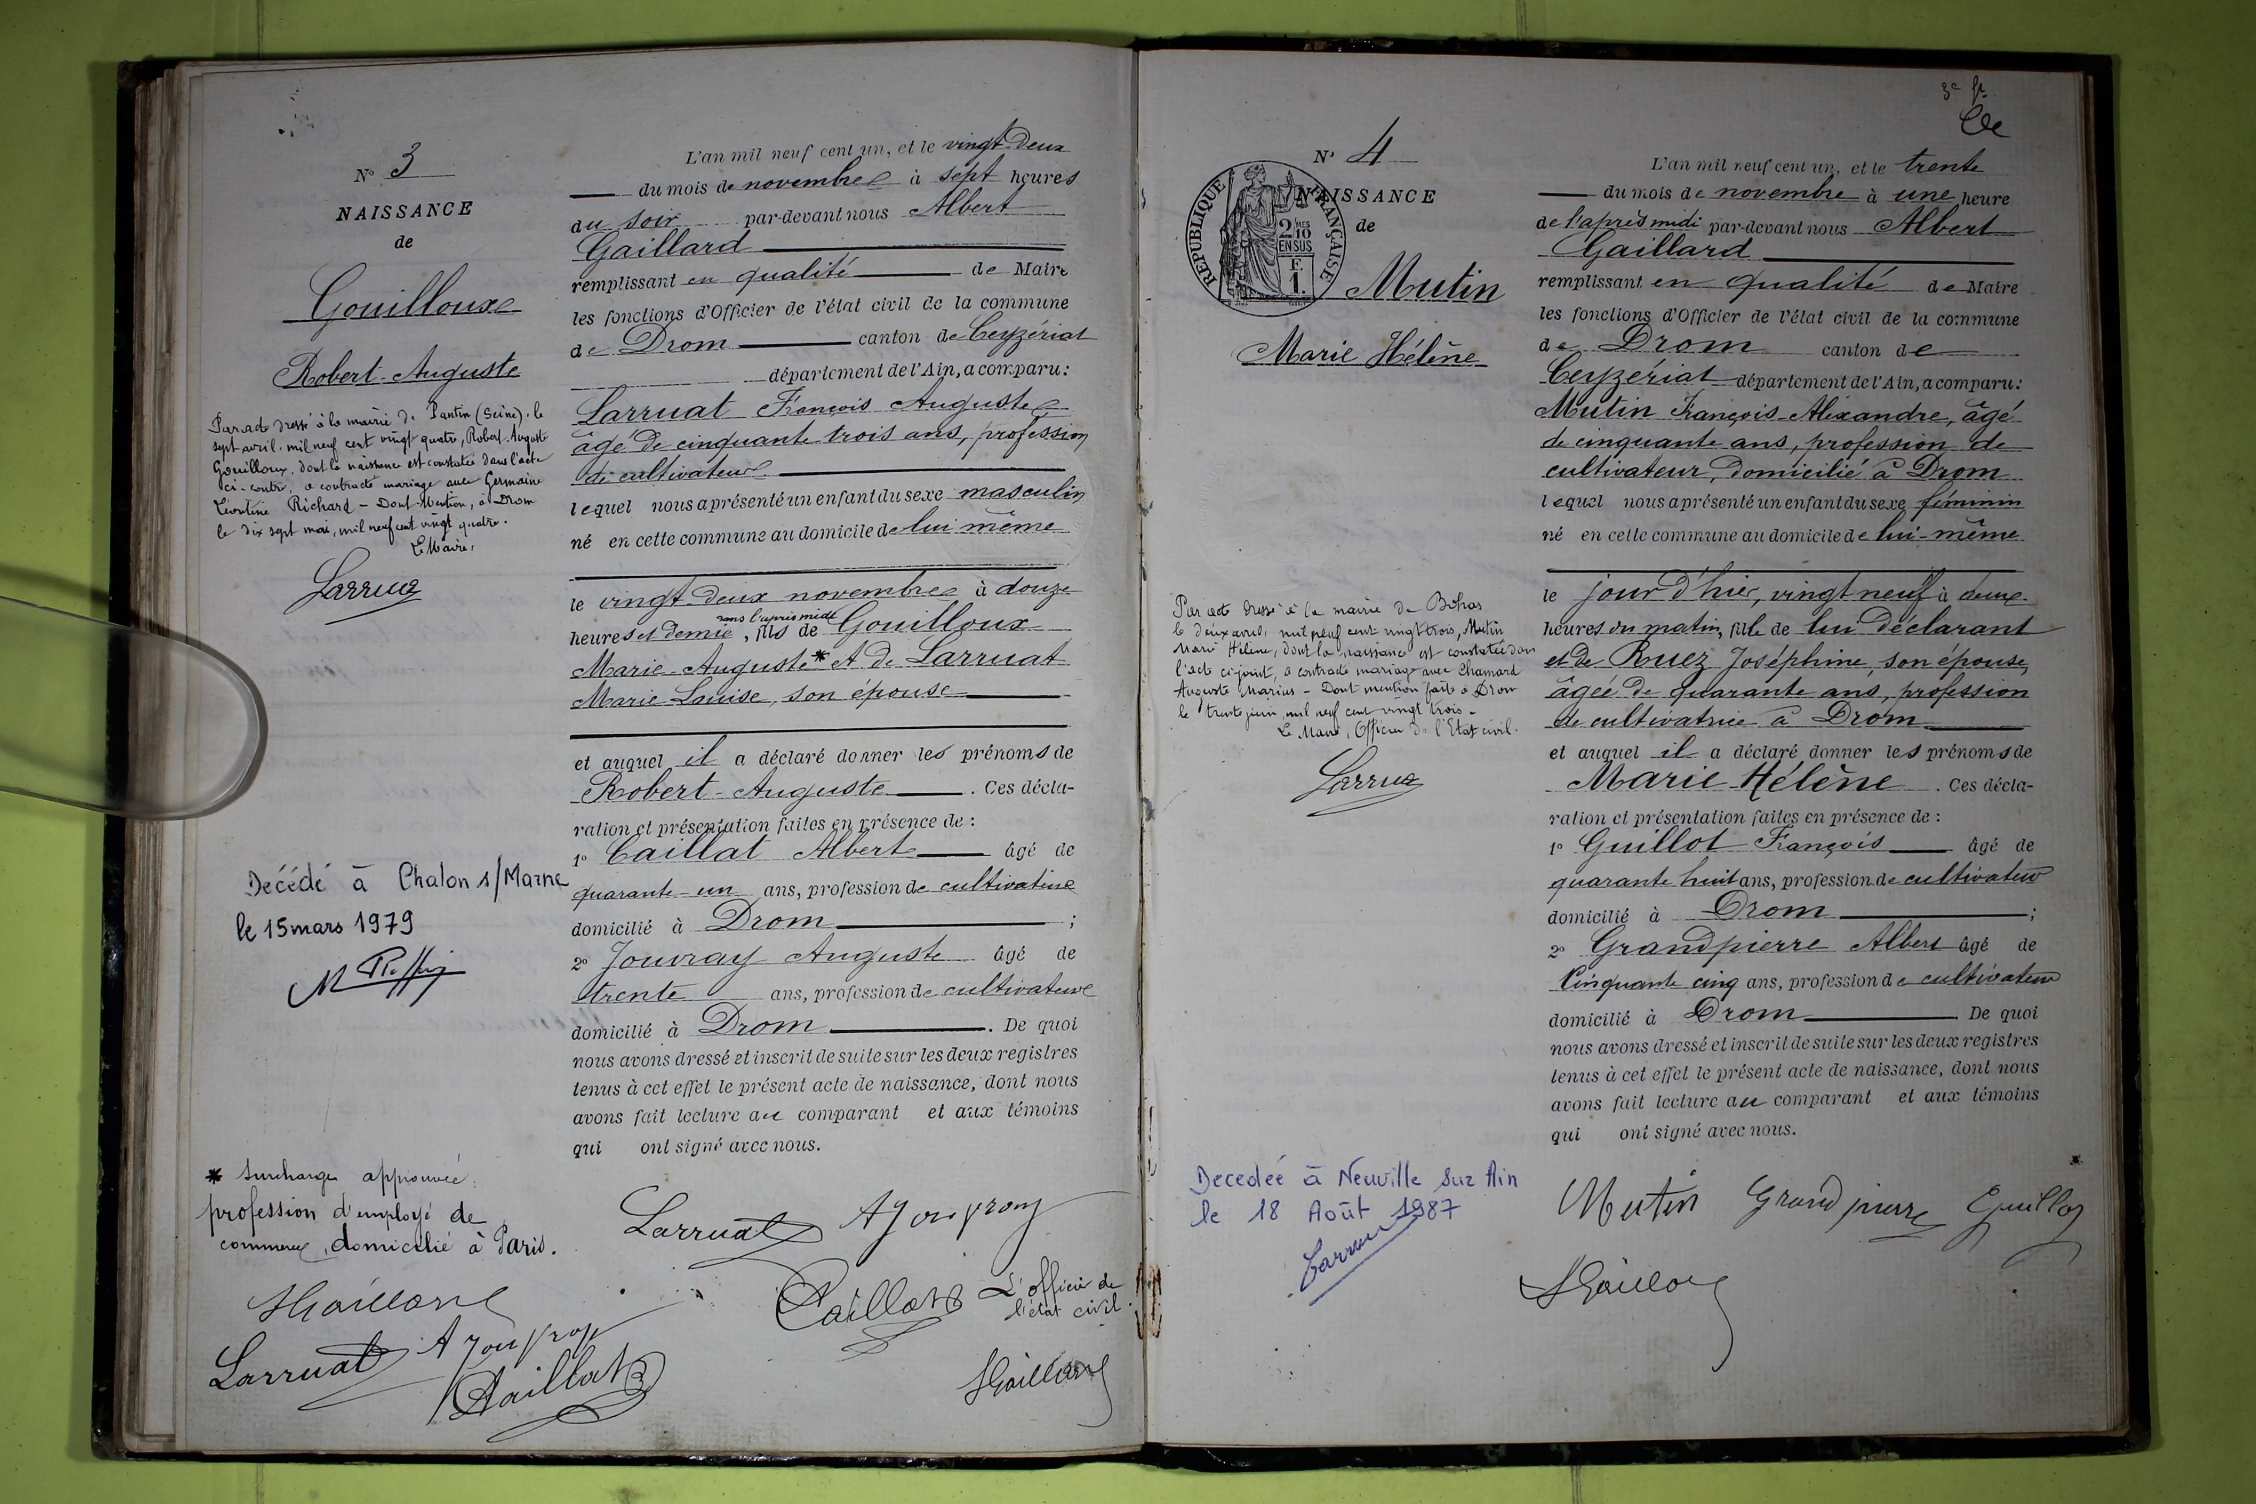 N° 3
NAISSANCE
de
Gouilloux
Robert-Auguste
Par acte dressé à la mairie de Pantin (Seine), le
sept avril, mil neuf cent vingt quatre, Robert-Auguste
Gouilloux, dont la naissance est constatée dans l'acte
ci-contre, a contracté mariage avec Germaine
Léontine Richard - Dont Mention, à Drom
le dix sept mai, mil neuf cent vingt quatre.
Le Maire,
Larrua
Décédé à Chalon s/Marne
le 15 mars 1979
* Surcharge approuvée
profession d'employé de
commerce, domicilié à Paris.
AGaillard
Larruat AJouvray
Caillat
L'an mil neuf cent un, et le vingt-deux
du mois de novembre à sept heures
du soir par-devant nous Albert
Gaillard
remplissant en qualité de Maire
les fonctions d'Officier de l'état civil de la commune
de Drom canton de Ceyzériat
département de l'Ain, a comparu:
Larruat François Auguste
âgé de cinquante trois ans, profession
de cultivateur
lequel nous a présenté un enfant du sexe masculin
né en cette commune au domicile de lui même
le vingt-deux novembre à douze
heures et demie, dans l'après midi fils de Gouilloux
Marie-Auguste * et de Larruat
Marie-Louise, son épouse
et auquel il a déclaré donner les prénoms de
Robert-Auguste. Ces décla-
ration et présentation faites en présence de :
1° Caillat Albert âgé de
quarante-un ans, profession de cultivateur
domicilié à Drom ;
2° Jouvray Auguste âgé de
trente ans, profession de cultivateur
domicilié à Drom. De quoi
nous avons dressé et inscrit de suite sur les deux registres
tenus à cet effet le présent acte de naissance, dont nous
avons fait lecture au comparant et aux témoins
qui ont signé avec nous.
Larruat AJouvray
Caillat L'officier de
l'état civil.
AGaillard
N° 4
NAISSANCE
de
RÉPUBLIQUE FRANÇAISE
2/10 EN SUS
F. 1.
Mutin
Marie Hélène
Par acte dressé à la mairie de Bohas
le deux avril, mil neuf cent vingt trois, Mutin
Marie Hélène, dont la naissance est constatée dans
l'acte ci-joint, a contracté mariage avec Chamard
Auguste Marius - Dont mention faite à Drom
le trente juin, mil neuf cent vingt trois -
Le Maire, Officier de l'Etat civil.
Larrua
Decedeé à Neuville sur Ain
le 18 Août 1987
L'an mil neuf cent un, et le trente
du mois de novembre à une heure
de l'après midi par-devant nous Albert
Gaillard
remplissant en qualité de Maire
les fonctions d'Officier de l'état civil de la commune
de Drom canton de
Ceyzériat département de l'Ain, a comparu:
Mutin François-Alixandre, âgé
de cinquante ans, profession de
cultivateur, domicilié à Drom
lequel nous a présenté un enfant du sexe féminin
né en cette commune au domicile de lui-même
le jour d'hier, vingt neuf à deux
heures du matin, fille de lui déclarant
et de Ruez Joséphine, son épouse,
âgée de quarante ans, profession
de cultivatrice à Drom
et auquel il a déclaré donner les prénoms de
Marie Hélène. Ces décla-
ration et présentation faites en présence de :
1° Guillot François âgé de
quarante huit ans, profession de cultivateur
domicilié à Drom ;
2° Grandpierre Albert âgé de
Cinquante cinq ans, profession de cultivateur
domicilié à Drom. De quoi
nous avons dressé et inscrit de suite sur les deux registres
tenus à cet effet le présent acte de naissance, dont nous
avons fait lecture au comparant et aux témoins
qui ont signé avec nous.
Mutin Grandpierre Guillot
AGaillard